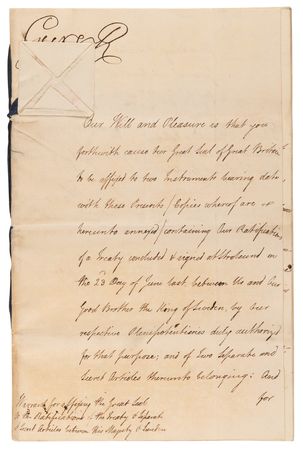 George R
Our Will and Pleasure is that you
forthwith cause our Great Seal of Great Britain
to be affixed to two Instruments bearing date
with these Presents (Copies whereof are
hereunto annexed) containing Our Ratification
of a Treaty concluded & signed at Stralsund on
the 23 Day of June last, between Us and Our
Good Brother the King of Sweden, by our
respective Plenipotentiaries duly authorized
for that purpose; and of two Separate and
Secret Articles thereunto belonging: And
for
Warrant for affixing the Great Seal
to the Ratifications of the Treaty & Separate
& Secret Articles between His Majesty & Sweden